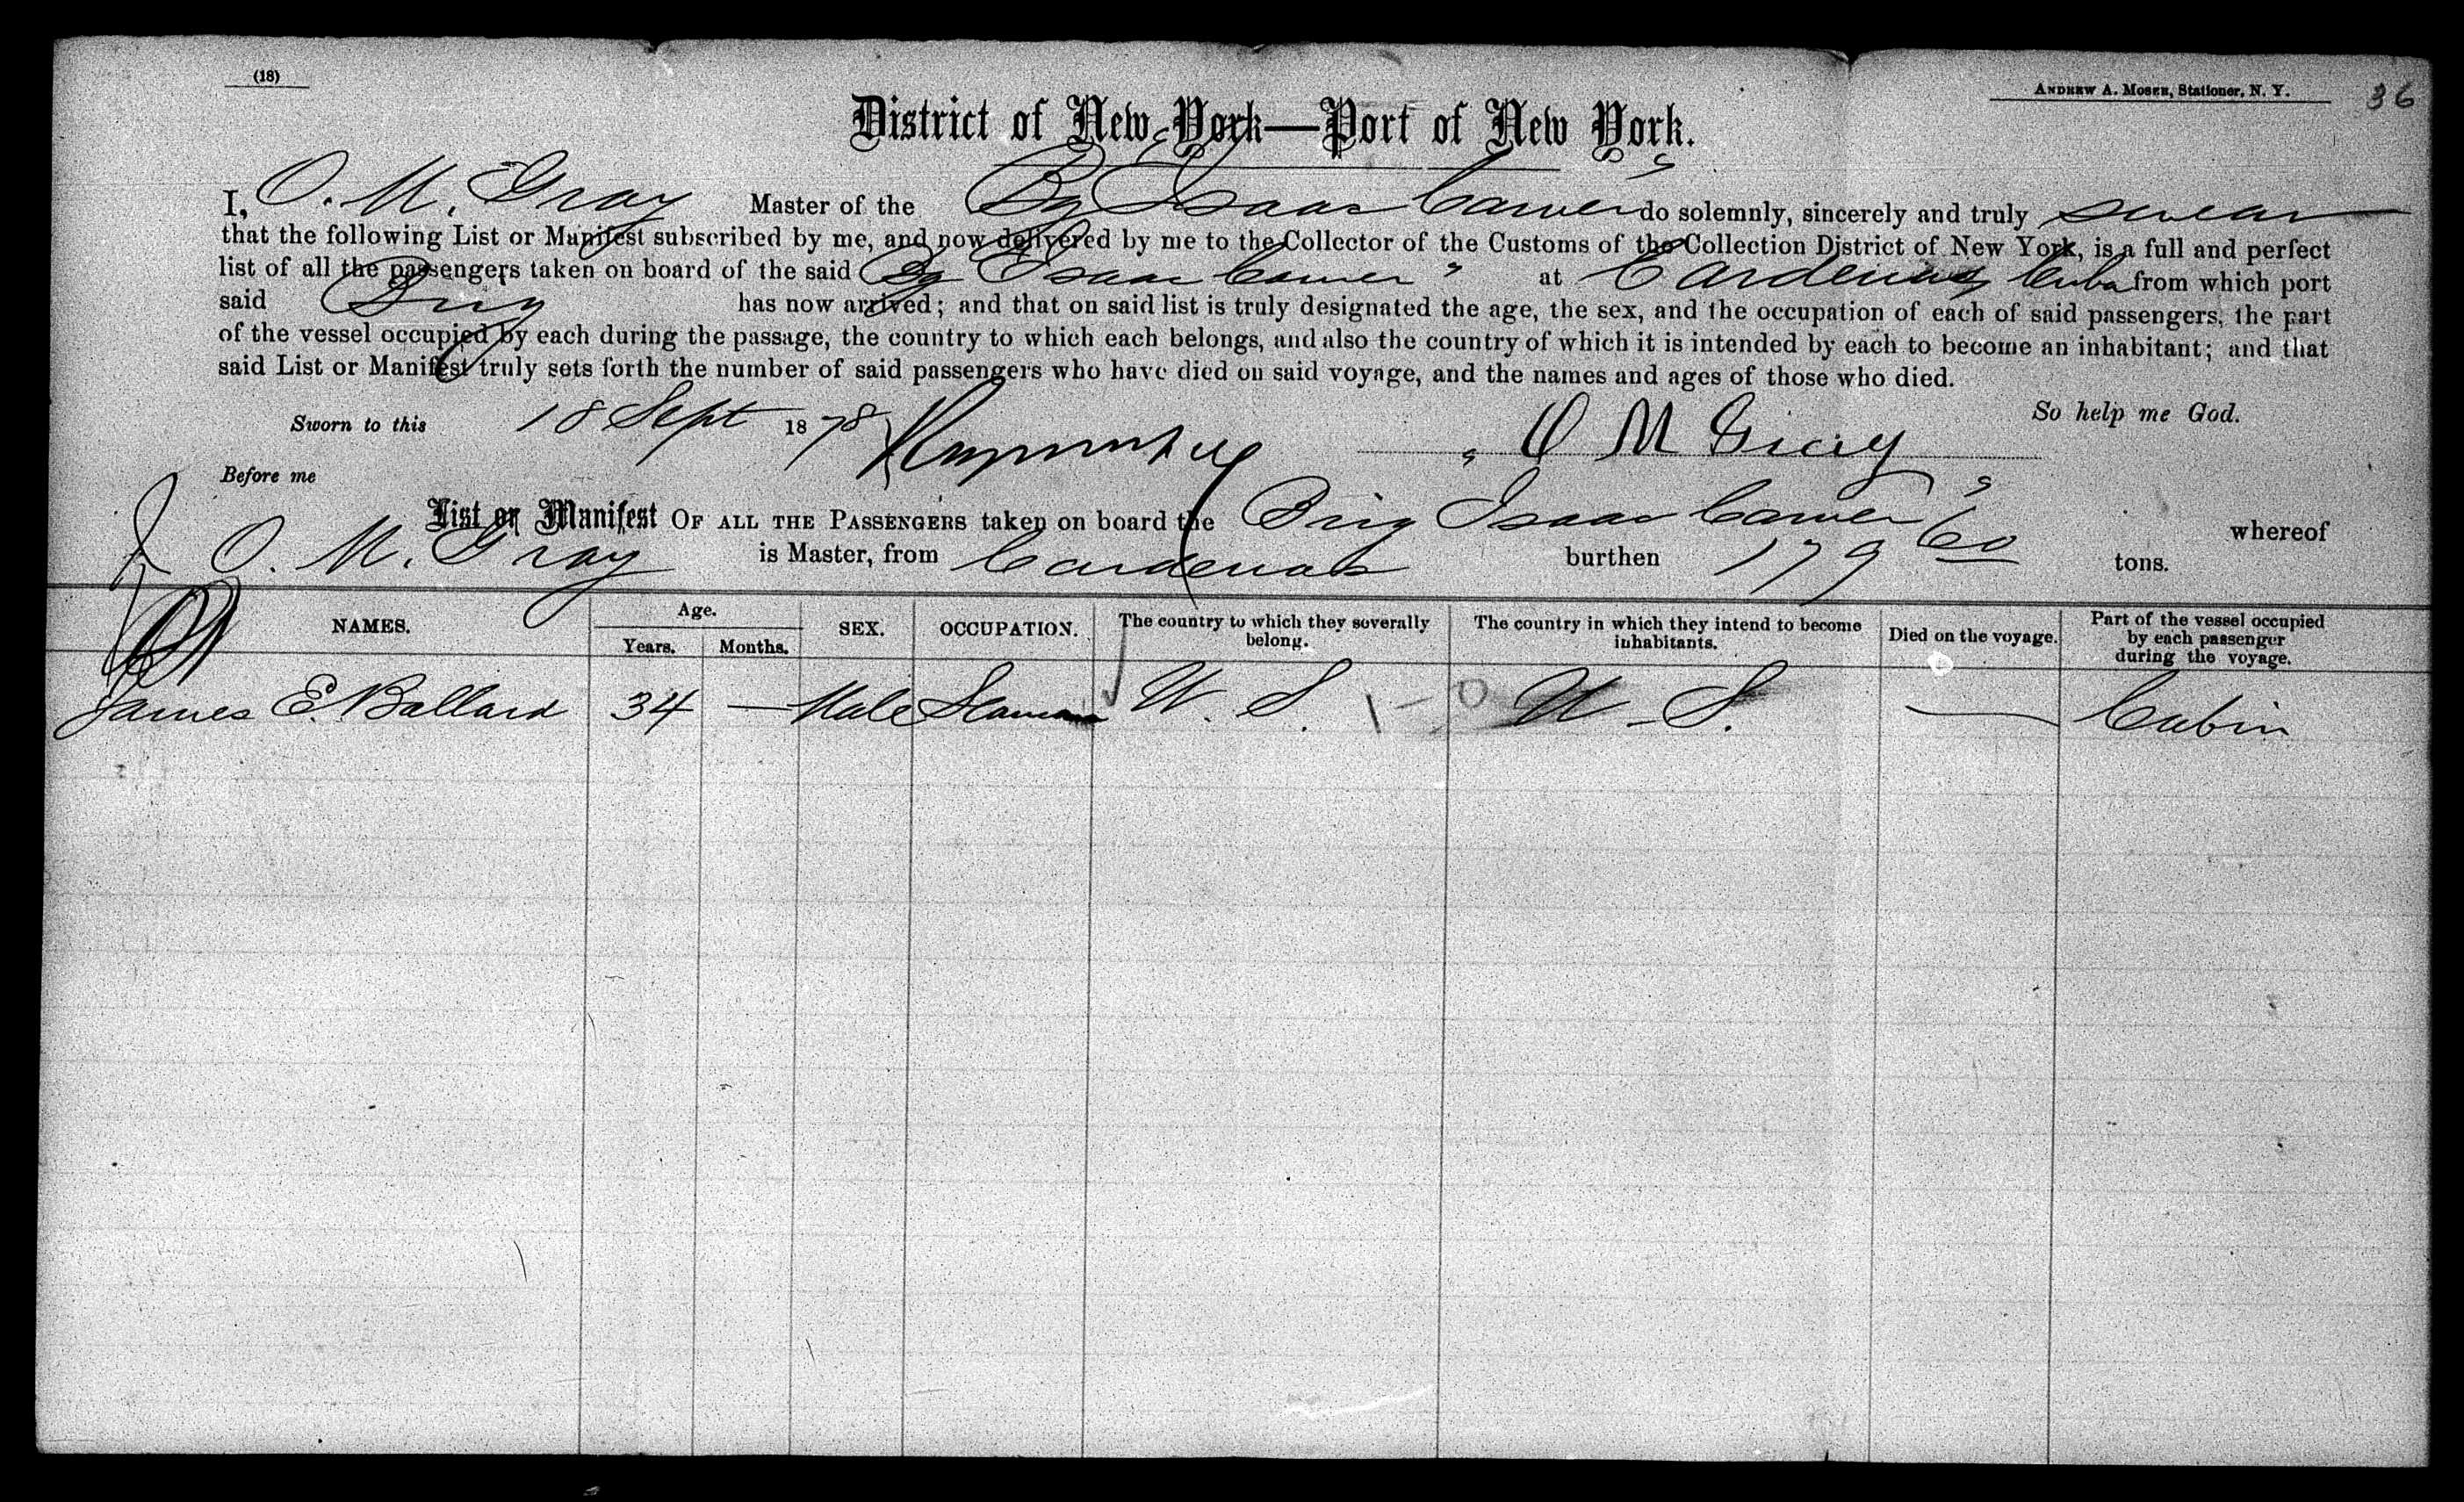 (18)
ANDREW A. MOSER, Stationer, N. Y.
36
District of New York—Port of New York.
I, O. M. Gray Master of the Bg "Isaac Carver" do solemnly, sincerely and truly swear
that the following List or Manifest subscribed by me, and now delivered by me to the Collector of the Customs of the Collection District of New York, is a full and perfect
list of all the passengers taken on board of the said Bg "Isaac Carver" at Cardenas Cuba from which port
said Brig has now arrived; and that on said list is truly designated the age, the sex, and the occupation of each of said passengers, the part
of the vessel occupied by each during the passage, the country to which each belongs, and also the country of which it is intended by each to become an inhabitant; and that
said List or Manifest truly sets forth the number of said passengers who have died on said voyage, and the names and ages of those who died.
Sworn to this 18 Sept 1878
So help me God.
O M Gray
Before me
List or Manifest OF ALL THE PASSENGERS taken on board the Brig Isaac Carver" whereof
O. M. Gray is Master, from Cardenas burthen 179 60 tons.
NAMES. Age. Years. Months. SEX. OCCUPATION. The country to which they severally belong. The country in which they intend to become inhabitants. Died on the voyage. Part of the vessel occupied by each passenger during the voyage.
James E. Ballard 34 — Male Seaman U. S. 1 - 0 U. S. — Cabin